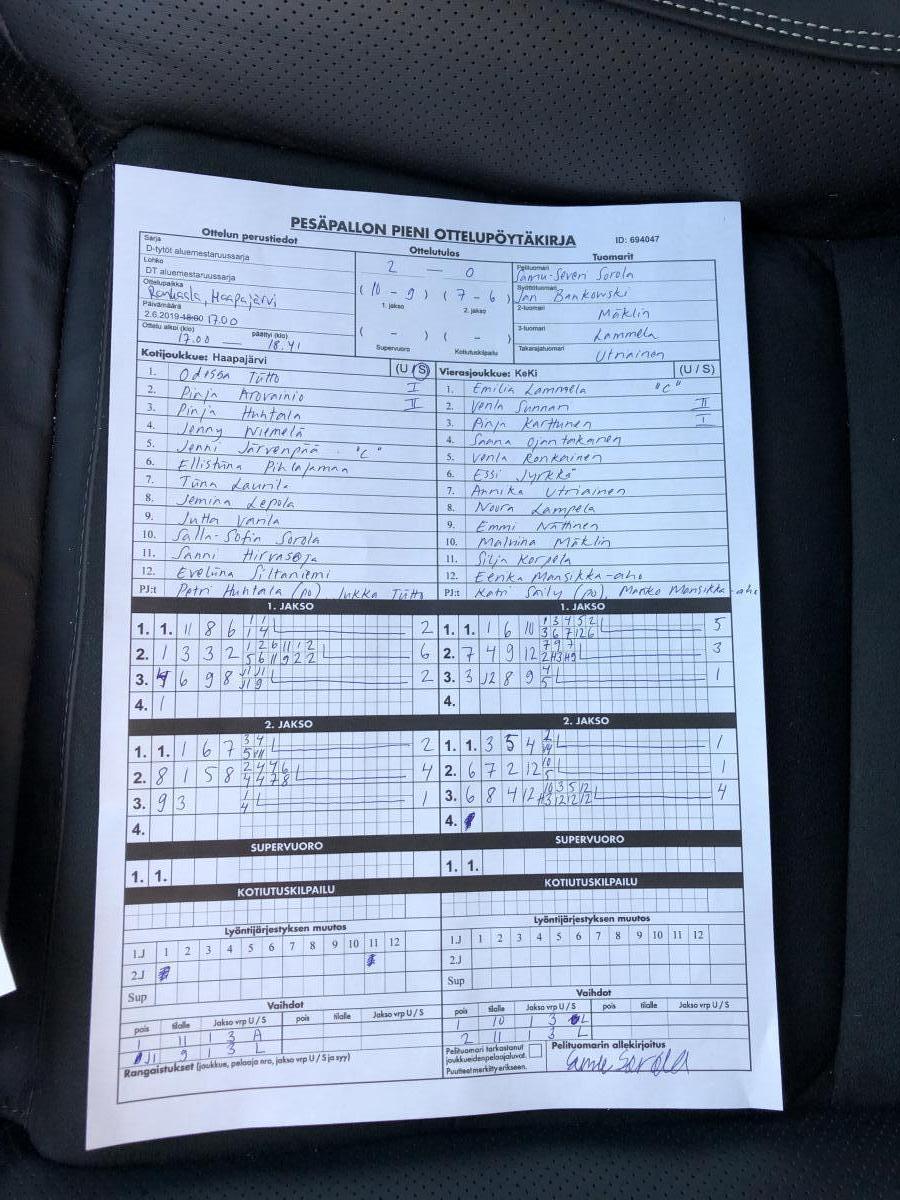 PESÄPALLON PIENI OTTELUPÖYTÄKIRJA
ID: 694047
Ottelun perustiedot
Sarja
D-tytöt aluemestaruussarja
Lohko
DT aluemestaruussarja
Ottelupaikka
Haapajärvi
Päivämäärä
2.6.2019 18:00 17.00
Ottelu alkoi (klo) päättyi (klo)
17.00 — 18.41
Ottelutulos
2 — 0
(10 - 9) (7 - 6)
1. jakso 2. jakso
( - ) ( - )
Supervuoro Kotiutuskilpailu
Tuomarit
Pelituomari
Samu-Severi Sorola
Syöttötuomari
Jan Bankowski
2-tuomari
Mäklin
3-tuomari
Lammela
Takarajatuomari
Utriainen
Kotijoukkue: Haapajärvi (U / S)
1. Odessa Tütto
2. Pinja Arovainio I
3. Pinja Huhtala II
4. Jenny Niemelä
5. Jenni Järvenpää "C"
6. Ellistiina Pihlajamaa
7. Tiina Laurila
8. Jemina Lepola
9. Jutta Vanla
10. Salla-Sofia Sorola
11. Sanni Hirvasoja
12. Eveliina Siltaniemi
PJ:t Petri Huhtala (po), Jukka Tütto
Vierasjoukkue: KeKi (U / S)
1. Emilia Lammela "C"
2. Venla Sunnari II
3. Pinja Karttunen I
4. Saana Ojantakanen
5. Venla Ronkainen
6. Essi Jyrkkä
7. Annika Utriainen
8. Noora Lampela
9. Emmi Nättinen
10. Malviina Mäklin
11. Silja Korpela
12. Eerika Mansikka-aho
PJ:t Katri Säily (po), Marko Mansikka-aho
1. JAKSO
1. 1. 11 8 6 2
2. 1 3 3 2 6
3. 6 9 8 2
4. 1
1. JAKSO
1. 1. 1 6 10 5
2. 7 4 9 12 3
3. 3 12 8 9 1
4.
2. JAKSO
1. 1. 1 6 7 2
2. 8 1 5 8 4
3. 9 3 1
4.
2. JAKSO
1. 1. 3 5 4 1
2. 6 7 2 12 1
3. 6 8 4 12 4
4.
SUPERVUORO
1. 1.
SUPERVUORO
1. 1.
KOTIUTUSKILPAILU
KOTIUTUSKILPAILU
Lyöntijärjestyksen muutos
1.J 1 2 3 4 5 6 7 8 9 10 11 12
2.J
Sup
Lyöntijärjestyksen muutos
1.J 1 2 3 4 5 6 7 8 9 10 11 12
2.J
Sup
Vaihdot
pois tilalle Jakso vrp U / S pois tilalle Jakso vrp U / S
1 11 1 3 A
11 9 1 3 L
Vaihdot
pois tilalle Jakso vrp U / S pois tilalle Jakso vrp U / S
1 10 1 3 L
2 11 1 3 L
Rangaistukset (joukkue, pelaaja nro, jakso vrp U / S ja syy)
Pelituomari tarkastanut
joukkueiden pelaajaluvat.
Puutteet merkitty erikseen.
Pelituomarin allekirjoitus
Sorola